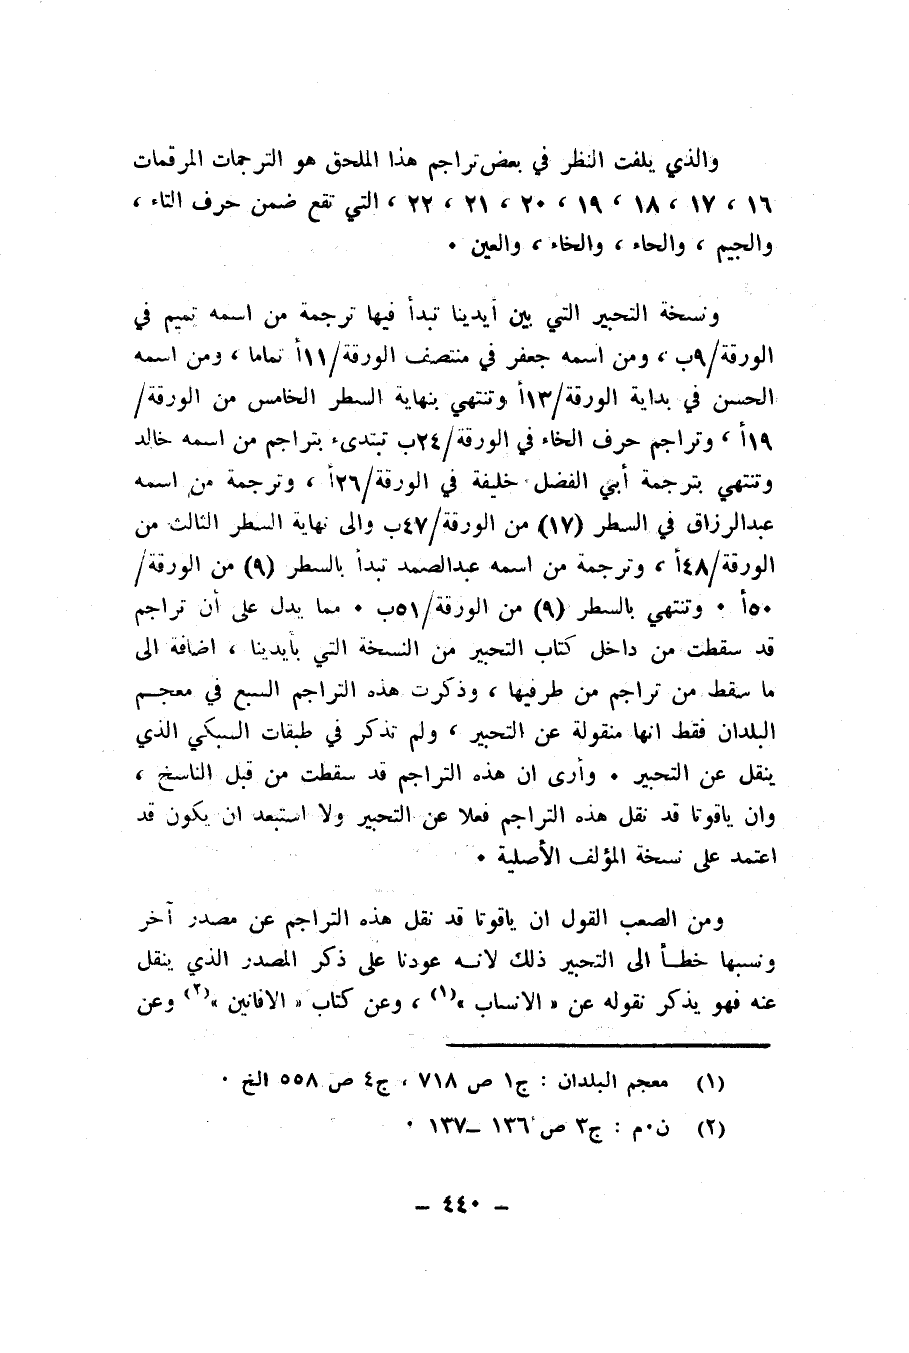 والذي يلفت النظر في بعض تراجم هذا الملحق هو الترجمات المرقمات
١٦ ، ١٧ ، ١٨ ، ١٩ ، ٢٠ ، ٢١ ، ٢٢ ، التي تقع ضمن حرف التاء ،
والجيم ، والحاء ، والخاء ، والعين ٠
ونسخة التحبير التي بين أيدينا تبدأ فيها ترجمة من اسمه تميم في
الورقة/٩ب ، ومن اسمه جعفر في منتصف الورقة/١١أ تماما ، ومن اسمه
الحسن في بداية الورقة/١٣أ وتنتهي بنهاية السطر الخامس من الورقة/
١٩أ ، وتراجم حرف الخاء في الورقة/٢٤ب تبتدىء بتراجم من اسمه خالد
وتنتهي بترجمة أبي الفضل خليفة في الورقة/٢٦أ ، وترجمة من اسمه
عبدالرزاق في السطر (١٧) من الورقة/٤٧ب والى نهاية السطر الثالث من
الورقة/٤٨أ ، وترجمة من اسمه عبدالصمد تبدأ بالسطر (٩) من الورقة/
٥٠أ ٠ وتنتهي بالسطر (٩) من الورقة/٥١ب ٠ مما يدل على أن تراجم
قد سقطت من داخل كتاب التحبير من النسخة التي بأيدينا ، اضافة الى
ما سقط من تراجم من طرفيها ، وذكرت هذه التراجم السبع في معجم
البلدان فقط انها منقولة عن التحبير ، ولم تذكر في طبقات السبكي الذي
ينقل عن التحبير ٠ وأرى ان هذه التراجم قد سقطت من قبل الناسخ ،
وان ياقوتا قد نقل هذه التراجم فعلا عن التحبير ولا استبعد ان يكون قد
اعتمد على نسخة المؤلف الأصلية ٠
ومن الصعب القول ان ياقوتا قد نقل هذه التراجم عن مصدر آخر
ونسبها خطأ الى التحبير ذلك لانه عودنا على ذكر المصدر الذي ينقل
عنه فهو يذكر نقوله عن « الانساب »(١) ، وعن كتاب « الافانين »(٢) وعن
(١) معجم البلدان : ج١ ص ٧١٨ ، ج٤ ص ٥٥٨ الخ ٠
(٢) ن٠م : ج٣ ص ١٣٦ ــ١٣٧ ٠
– ٤٤٠ –